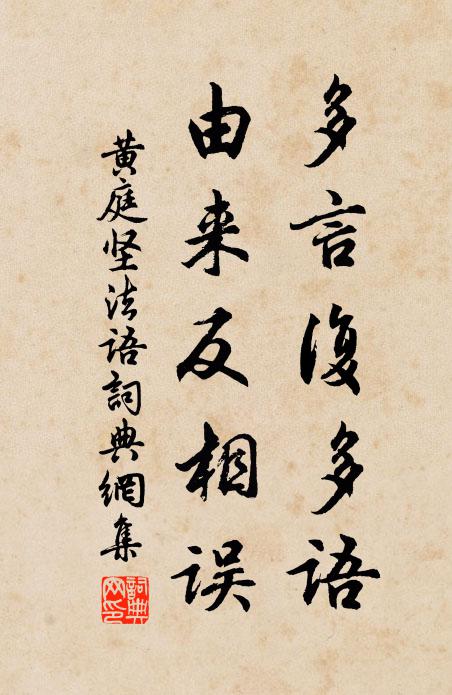 多言復多語
由来反相误
黄庭坚法语詞典網集
詞典